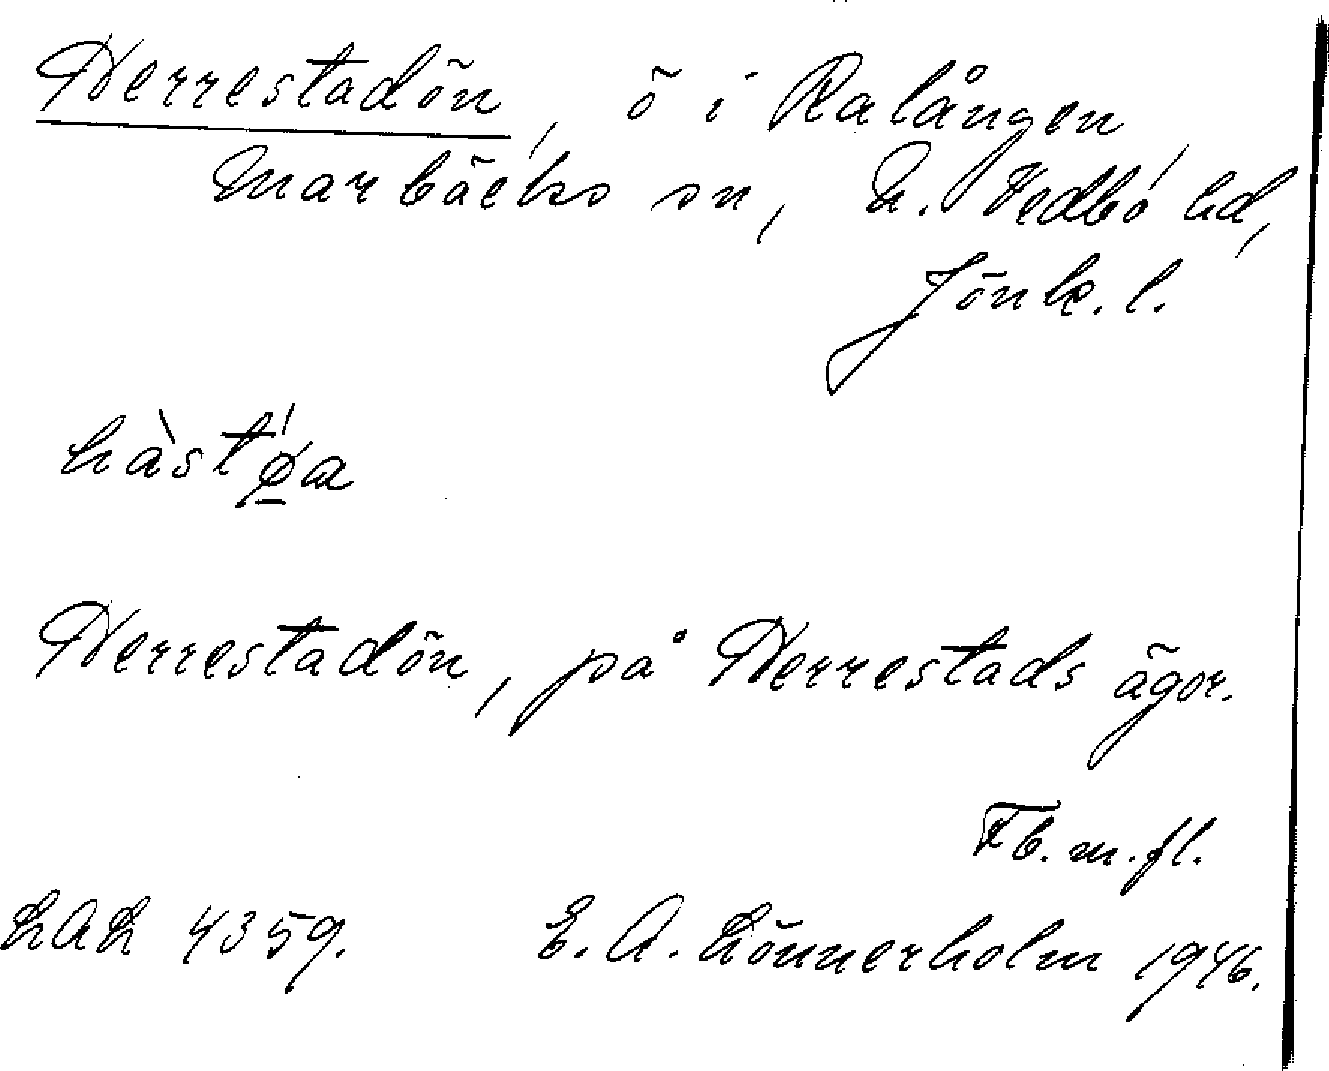 Herrestadön, ö i Ralången
Marbäcks sn, N. Vedbo hd,
Jönk. l.
hàst'øa
Herrestadön, på Herrestads ägor.
Fb. m. fl.
4359. E. A. Lönnerholm 1946.